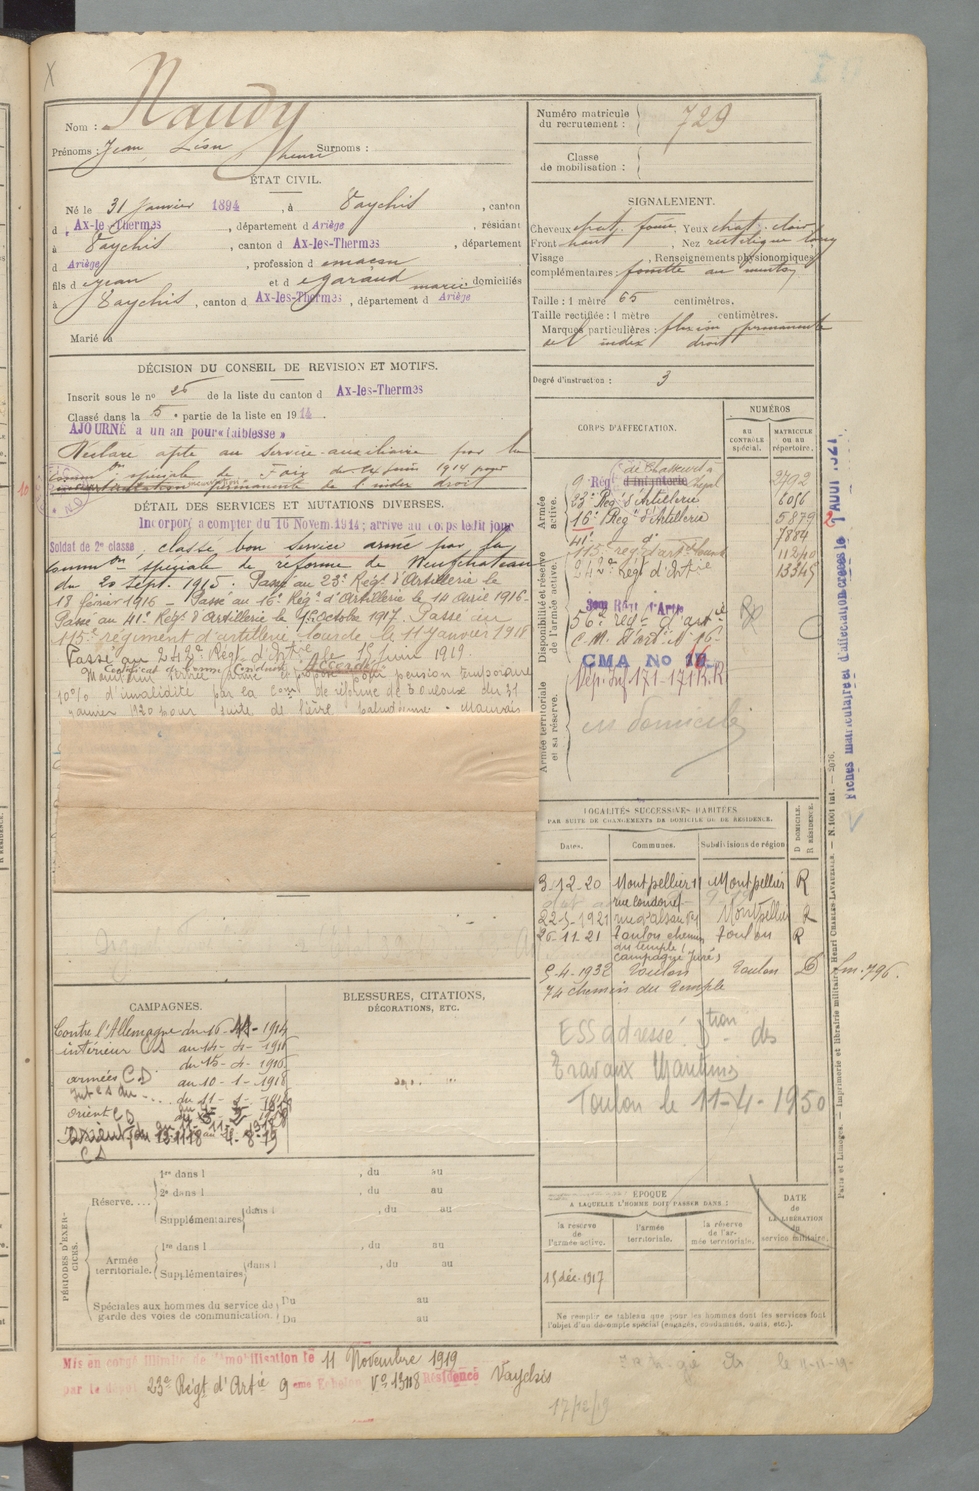 Nom : Naudy
Prénoms : Jean Léon Henri Surnoms :
ÉTAT CIVIL.
Né le 31 Janvier 1894, à Vaychis, canton
d Ax-les-Thermes, département d Ariège, résidant
à Vaychis, canton d Ax-les-Thermes, département
d Ariège, profession de maçon
fils d Jean et d Garaud Marie domiciliés
à Vaychis, canton d Ax-les-Thermes, département d Ariège
Marié à
DÉCISION DU CONSEIL DE REVISION ET MOTIFS.
Inscrit sous le no 26 de la liste du canton d Ax-les-Thermes
Classé dans la 5e partie de la liste en 1914.
AJOURNÉ a un an pour « faiblesse »
Déclaré apte au service auxiliaire par la
Common spéciale de Foix du 24 juin 1914 pour
incurvation permanente de l'index droit
DÉTAIL DES SERVICES ET MUTATIONS DIVERSES.
Incorporé a compter du 16 Novem. 1914; arrivé au corps ledit jour
Soldat de 2e classe, classé bon service armé par la
Common spéciale de réforme de Neufchateau
du 20 sept. 1915. Passé au 23e Régt d'Artillerie le
18 février 1916 – Passé au 16e Régt d'Artillerie le 14 Avril 1916 –
Passé au 41e Régt d'Artillerie le 1er Octobre 1917. Passé au
115e régiment d'artillerie lourde le 11 Janvier 1918
Passé au 242e Régt d'Artie le 15 Juin 1919.
Certificat de bonne Conduite Accordé
Maintenu service armé et proposé pour pension temporaire
10% d'invalidité par la Comon de réforme de Toulouse du 31
janvier 1920 pour suite de fièvre paludéenne. Mauvais
CAMPAGNES.
Contre l'Allemagne du 16-11-1914
intérieur CS au 14-4-1916
armées CD du 15-4-1916
au 10-1-1918
du 11-1-1918
orient CD
Orient du 13-11-18 au 4-8-19
CD
BLESSURES, CITATIONS,
DÉCORATIONS, ETC.
PÉRIODES D'EXERCICES.
Réserve.... 1re dans l , du au
2e dans l , du au
Supplémentaires dans l , du au
Armée territoriale. 1re dans l , du au
Supplémentaires dans l , du au
Spéciales aux hommes du service de Du au
garde des voies de communication. Du au
Mis en congé illimité de démobilisation le 11 Novembre 1919
par le dépôt 23e Régt d'Artie 9eme Echelon No 13118 Résidence Vaychis
17/12/19
Numéro matricule
du recrutement : 729
Classe
de mobilisation :
SIGNALEMENT.
Cheveux chat. foncé Yeux chat. clair
Front haut, Nez rectiligne long
Visage , Renseignements physionomiques
complémentaires : fossette au menton
Taille : 1 mètre 65 centimètres.
Taille rectifiée : 1 mètre centimètres.
Marques particulières : flexion permanente
de l'index droit
Degré d'instruction : 3
CORPS D'AFFECTATION.
NUMÉROS
AU CONTRÔLE spécial.
MATRICULE ou au répertoire.
Armée active.
9e Régt d'infanterie de Chasseurs à cheval 2792
23e Régt d'Artillerie 6056
16e Régt d'Artillerie 5879
41e do 7884
115e rég. d'artie lourde 11240
242e Régt d'Artie 13345
Disponibilité et réserve de l'armée active.
56e régt d'artie
C.M. d'artie 16
CMA No 16
Dép. Inf. 171-171 R.R
Armée territoriale et sa réserve.
Fiches matriculaire et d'affectation créées le 1 AOUT 1921
LOCALITÉS SUCCESSIVES HABITÉES
PAR SUITE DE CHANGEMENTS DE DOMICILE OU DE RÉSIDENCE.
Dates. Communes. Subdivisions de région D DOMICILE. R RÉSIDENCE.
3-12-20 Montpellier Montpellier R
22-5-1921 Montpellier R
26-11-21 Toulon chemin Toulon R
du temple
(campagne Juré)
5-4-1932 Toulon Toulon D fm. 796.
74 chemin du Temple
ESS adressé Dtion des
Travaux Maritimes
Toulon le 11-4-1950
ÉPOQUE
A LAQUELLE L'HOMME DOIT PASSER DANS :
la réserve de l'armée active.
l'armée territoriale.
la réserve de l'armée territoriale.
DATE de LA LIBÉRATION du service militaire.
15 déc. 1917
Ne remplir ce tableau que pour les hommes dont les services font
l'objet d'un décompte spécial (engagés, condamnés, omis, etc.).
Paris et Limoges. — Imprimerie et librairie militaires Henri CHARLES-LAVAUZELLE. — N. 1001 int. — 2076.